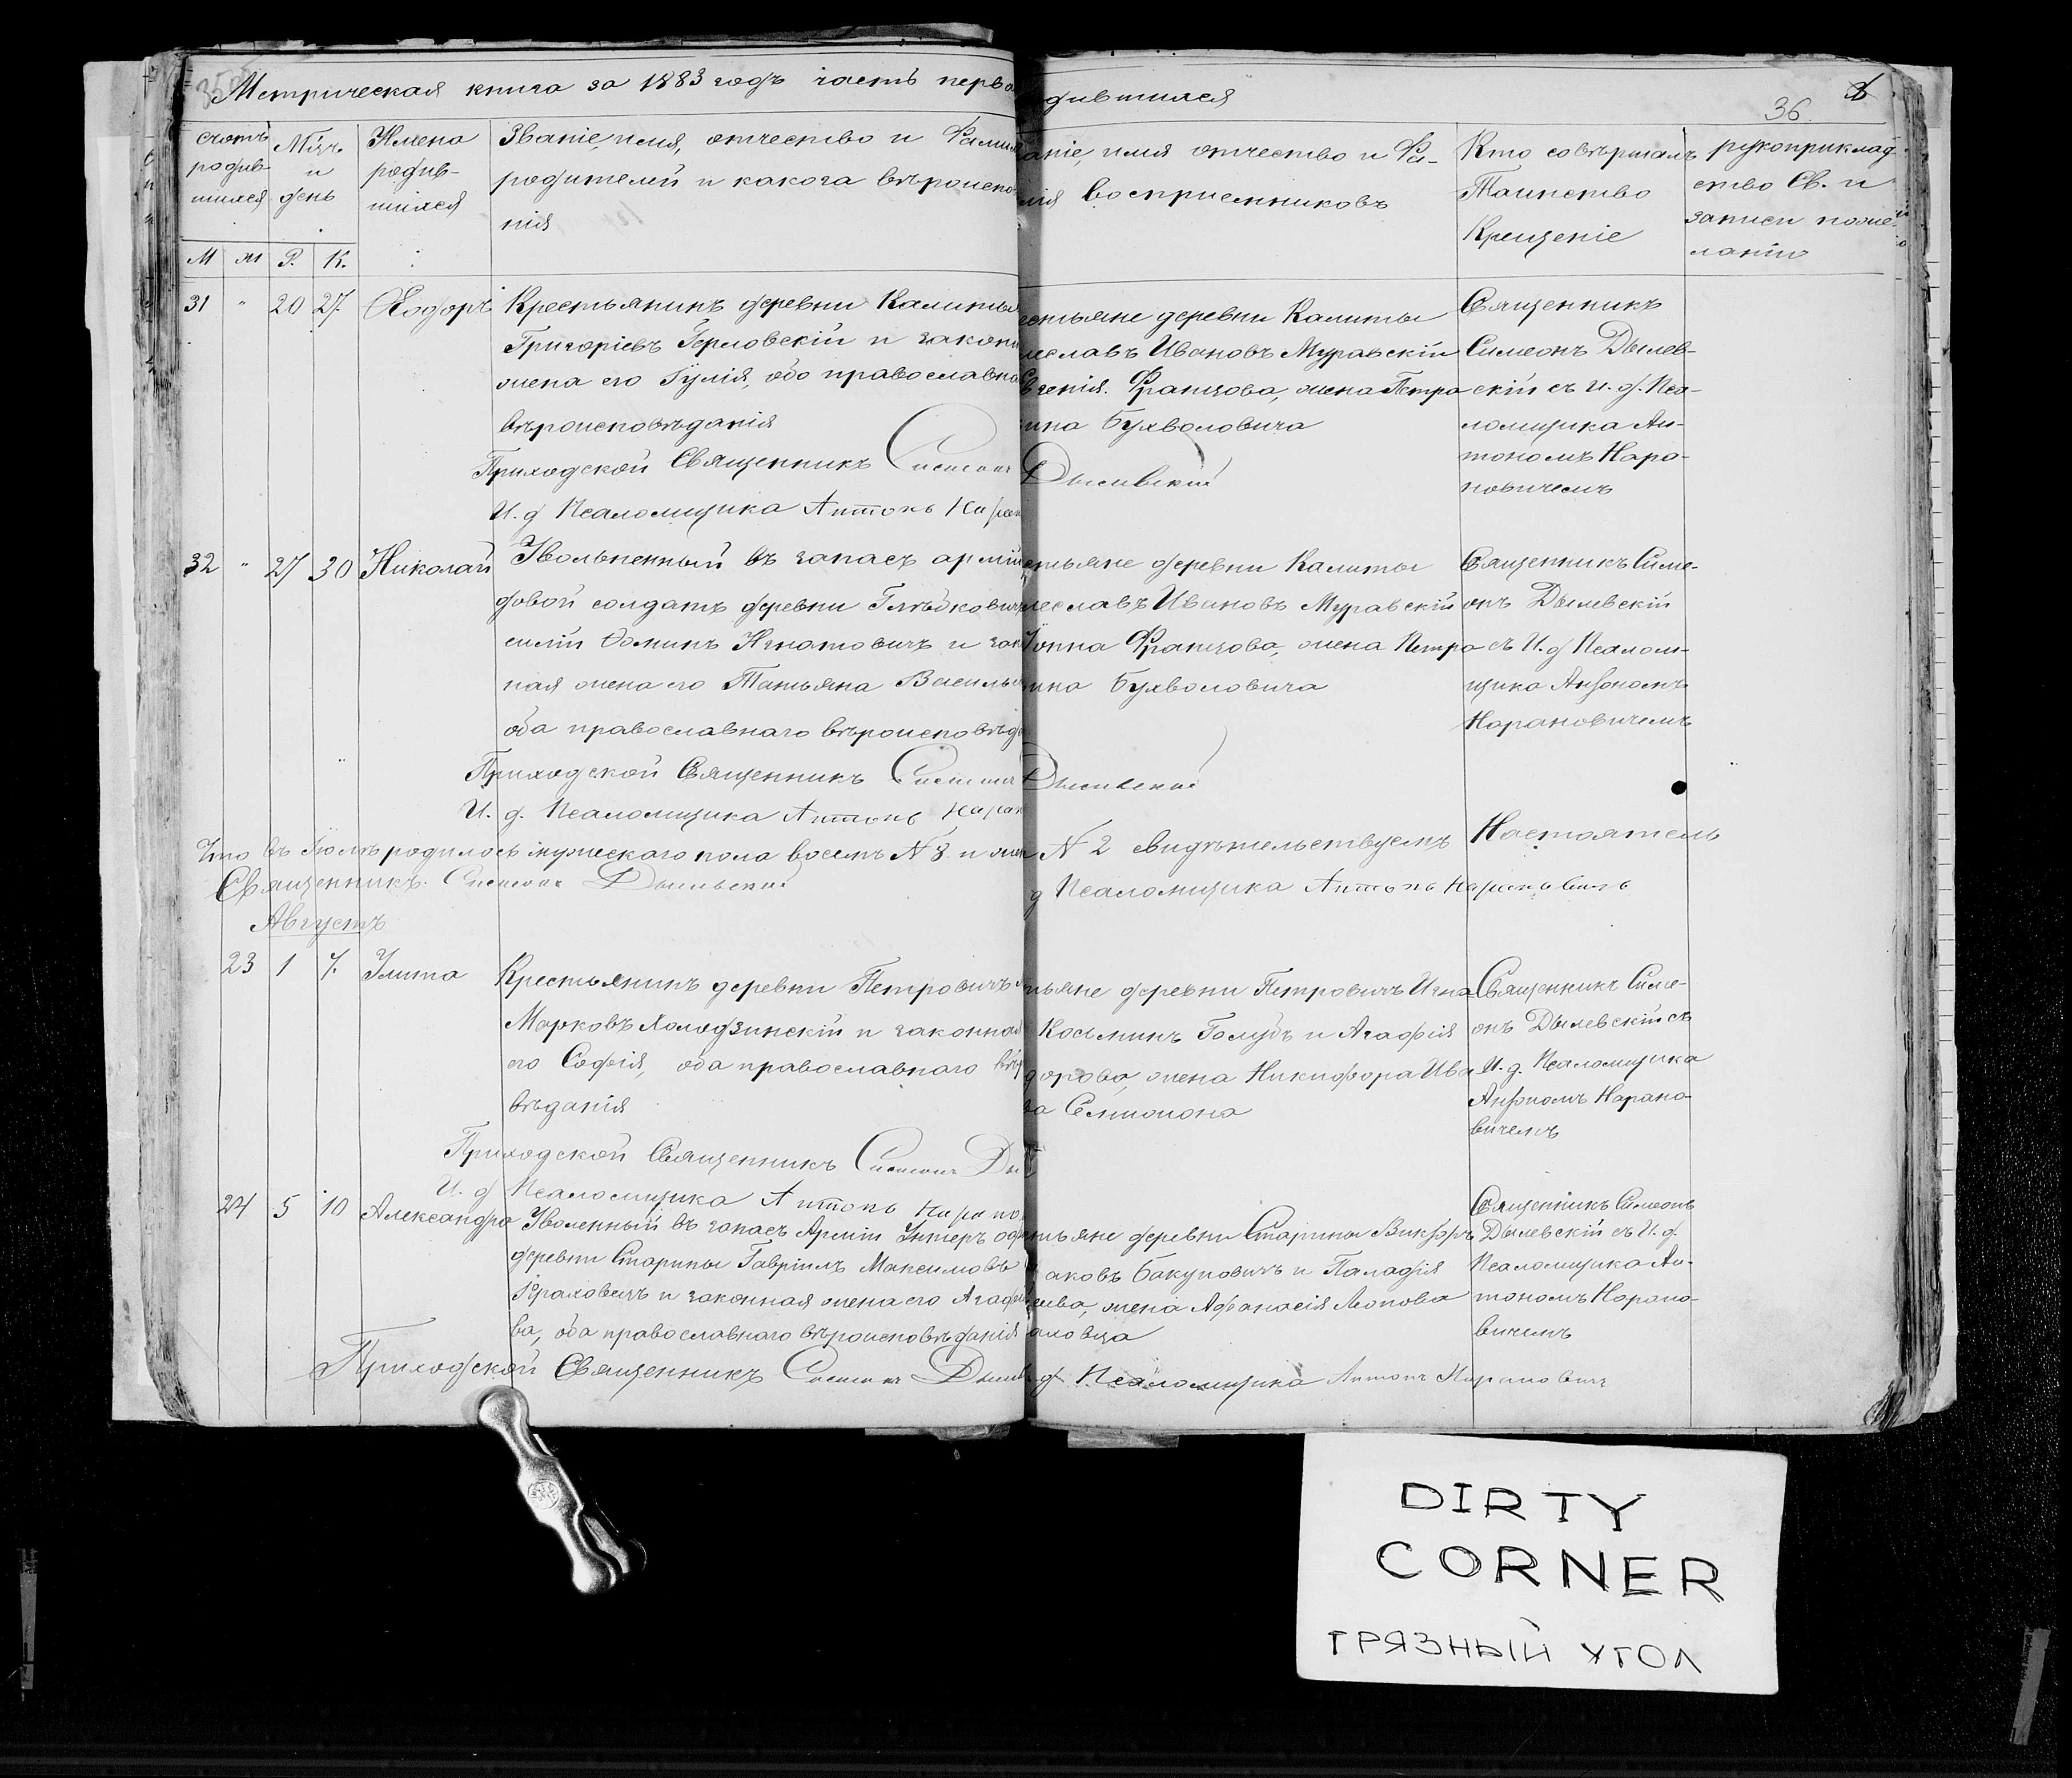 Метрическая книга за 1883 годъ часть перво
дившихся
36
счотъ родив- шихся
Мѣс. и день
Имена родив- шихся
Званіе, имя, отчество и Фамил
родителей и какога вѣроиспо
нія
аніе, имя отчество и Фа-
лія воспріемниковъ
Кто совѣршалъ
Таинство
Крещеніе
рукоприклад-
ство Св. и
записи поже-
ланію
М ж Р. К.
31 " 20 27. Ѳеодоръ
Крестьянинъ деревни Калиты
Григоріевъ Герловскій и закон
жена его Гулія, обо православна
вѣроисповѣданія
естьяне деревни Калиты
чеславъ Ивановъ Муравскій
генія. Францова, жена Петра
ина Бухволовича
Священникъ
Симеонъ Дылев-
скій съ и. д. Пса-
ломщика Ан-
тономъ Наро-
новичемъ
Приходской Священникъ Симеонъ Дылевскій
И. д Псаломщика Антонъ Наран
32 " 27 30 Николай
Увольненный въ запасъ арміи
довой солдатъ деревни Глѣбкович
силій Ѳоминъ Игнатовичъ и зак
ная жена его Татьяна Василье
оба православнаго вѣроисповѣд
стьяне деревни Калиты
чеславъ Ивановъ Муравскій
Іанна Францова, жена Петра
ина Бухволовича
Священникъ Симе-
онъ Дылевскій
съ И. д Псалом-
щика Антономъ
Нарановичемъ
Приходской Священникъ Симеонъ Дылевскій
И. д. Псаломщика Антонъ Наран
Что въ Іюлѣ родилось мужескаго пола восемъ N 8 и жен N 2 свидѣтельствуемъ Настоятель
Священникъ Симеонъ Дылевскій
д Псаломщика Антонъ Нарановичъ
Августъ
23 1 7. Улита
Крестьянинъ деревни Петровичъ
Марковъ Холодзинскій и законная
его Софія, оба православнаго вѣр
вѣданія
тьяне деревни Петровичъ Игна
Косьминъ Голубъ и Агафія
дорова, жена Никифора Ива
ва Селимона
Священникъ Симе-
онъ Дылевскій съ
И. д. Псаломщика
Антономъ Нарано-
вичемъ
Приходской Священникъ Симеонъ Ды
И. д Псаломщика Антонъ Нарано
24 5 10 Александра
Уволенный въ запасъ Арміи Унтеръ оф
деревни Старины Гавріилъ Максимовъ
Краховичъ и законная жена его Агаф
ва, оба православнаго вѣроисповѣданія
тьяне деревни Старины Викторъ
аковъ Бакуновичъ и Паладія
сѣева, жена Афанасія Леонова
аховца
Священникъ Симеонъ
Дылевскій съ И. д.
Псаломщика Ан-
тономъ Нарано-
вичемъ
Приходской Священникъ Симеонъ Дылев д Псаломщика Антонъ Нарановичъ
DIRTY
CORNER
ГРЯЗНЫЙ УГОЛ